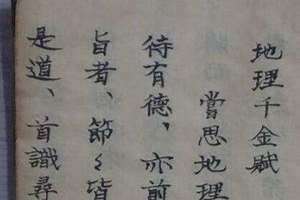 地理千金賦
嘗思地理
待有德、亦前
旨者、節々皆
是道、首識尋